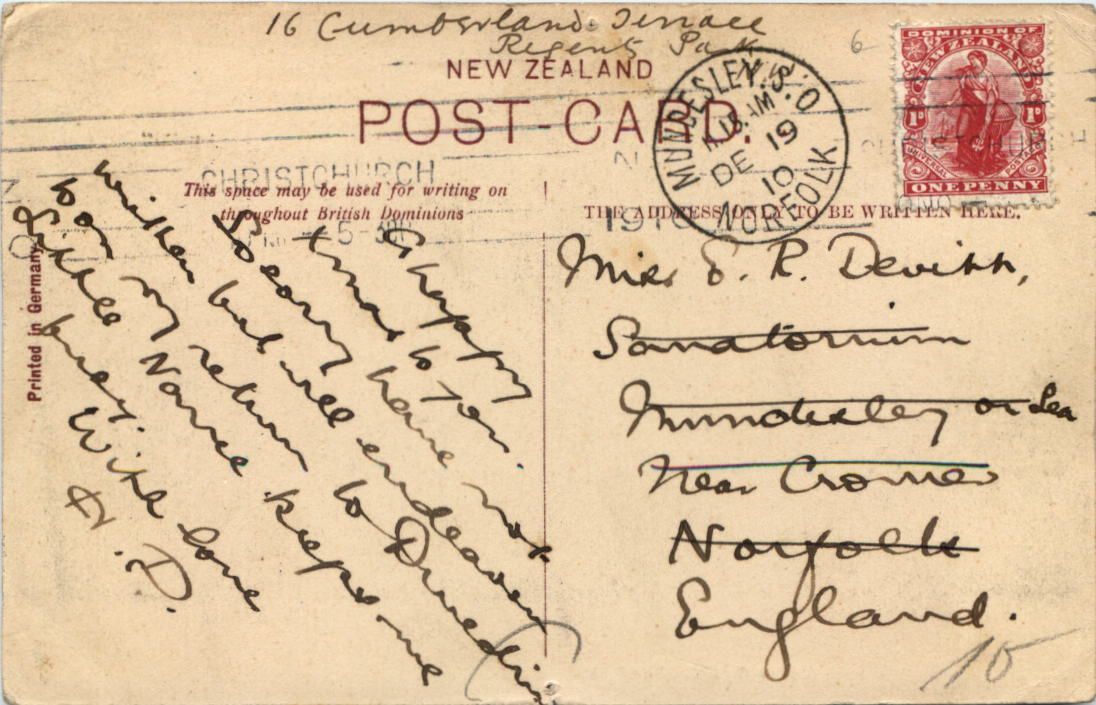 16 Cumberland Terrace
Regents Park
N.W.
6
NEW ZEALAND
POST-CARD.
MUNDESLEY. S.O
11.15 AM
DE 19
10
NORFOLK
DOMINION OF
NEW ZEALAND
1D 1D
UNIVERSAL POSTAGE
ONE PENNY
CHRISTCHURCH
CHRISTCHURCH
1910
This space may be used for writing on
throughout British Dominions
THE ADDRESS ONLY TO BE WRITTEN HERE.
Printed in Germany
A happy
Xmas to you.
So sorry have not
written but will endeavour
on my return to Dunedin
Little Nance keeps me
busy.
With love
A.D.
Miss E. R. Devitt,
Sanatorium
Mundesley on Sea
Near Cromer
Norfolk
England.
10